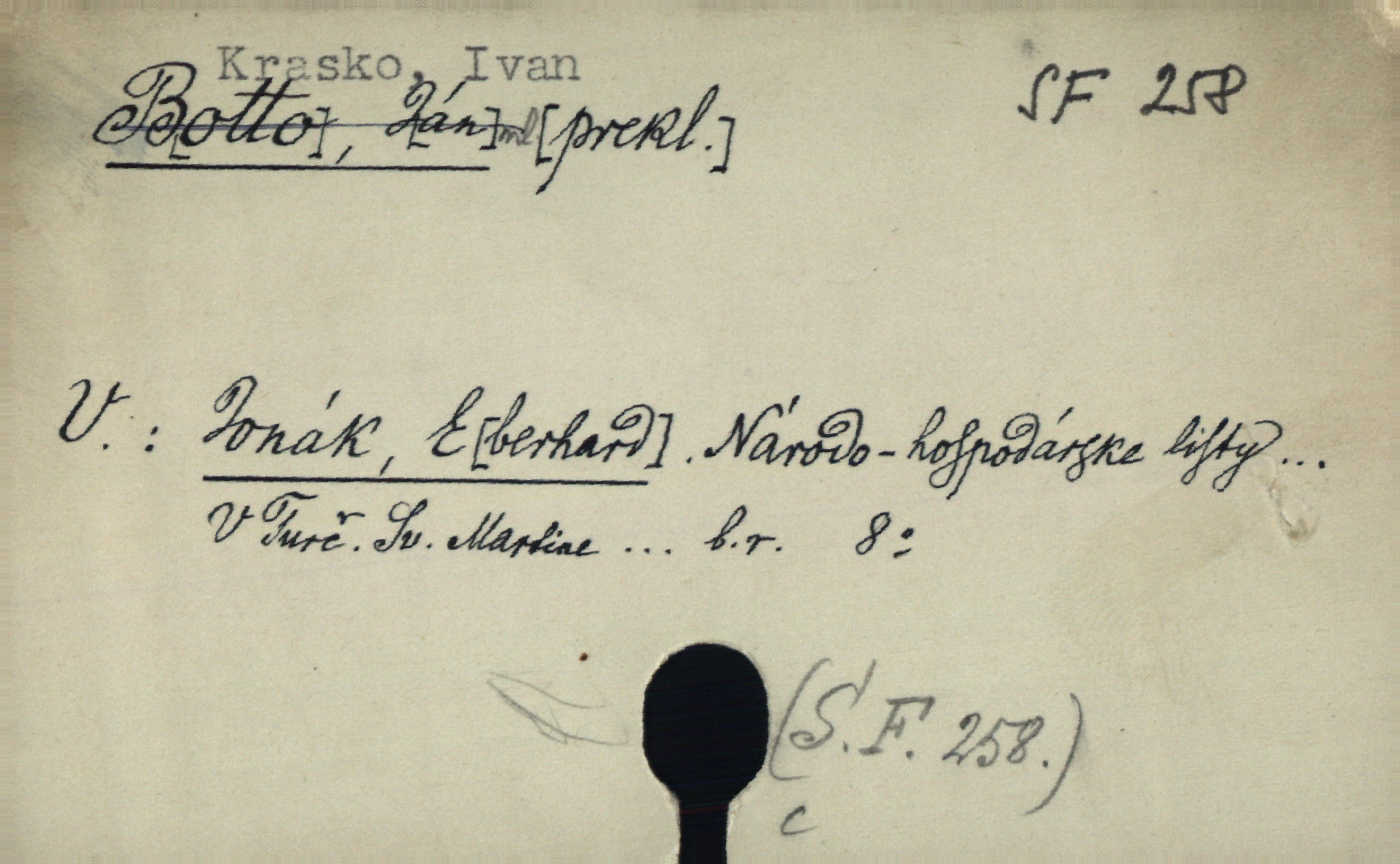 Krasko, Ivan
SF 258
B[otto], J[án] ml [prekl.]
V. : Jonák, E[berhard]. Národo-hospodárske listy ...
V Turč. Sv. Martine ... b.r. 8°
(S.F. 258.)
c